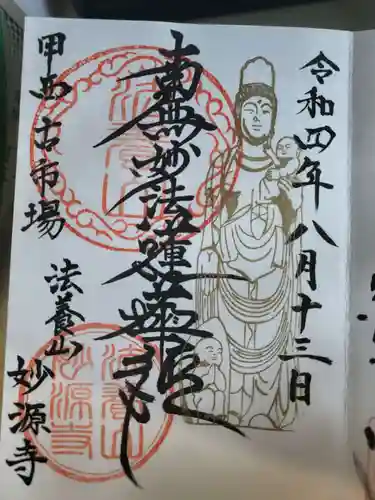 令和四年八月十三日
南無妙法蓮華経
甲西古市場
法養山
妙源寺
法養山
法養山
妙源寺